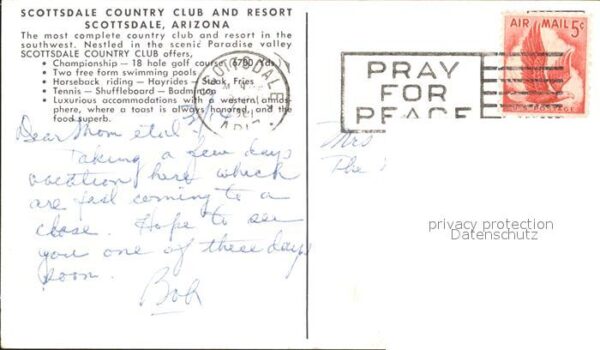 SCOTTSDALE COUNTRY CLUB AND RESORT
SCOTTSDALE, ARIZONA
The most complete country club and resort in the
southwest. Nestled in the scenic Paradise valley
SCOTTSDALE COUNTRY CLUB offers,
• Championship — 18 hole golf course, 6700 Yds.
• Two free form swimming pools
• Horseback riding — Hayrides — Steak Fries
• Tennis — Shuffleboard — Badminton
• Luxurious accommodations with a western atmos-
phere, where a toast is always honored, and the
food superb.
SCOTTSDALE
ARIZ
PRAY
FOR
PEACE
AIR MAIL 5¢
Dear Mom et al
Taking a few days
vacation here which
are fast coming to a
close. Hope to see
you one of these days
soon.
Bob
Mrs
privacy protection
Datenschutz